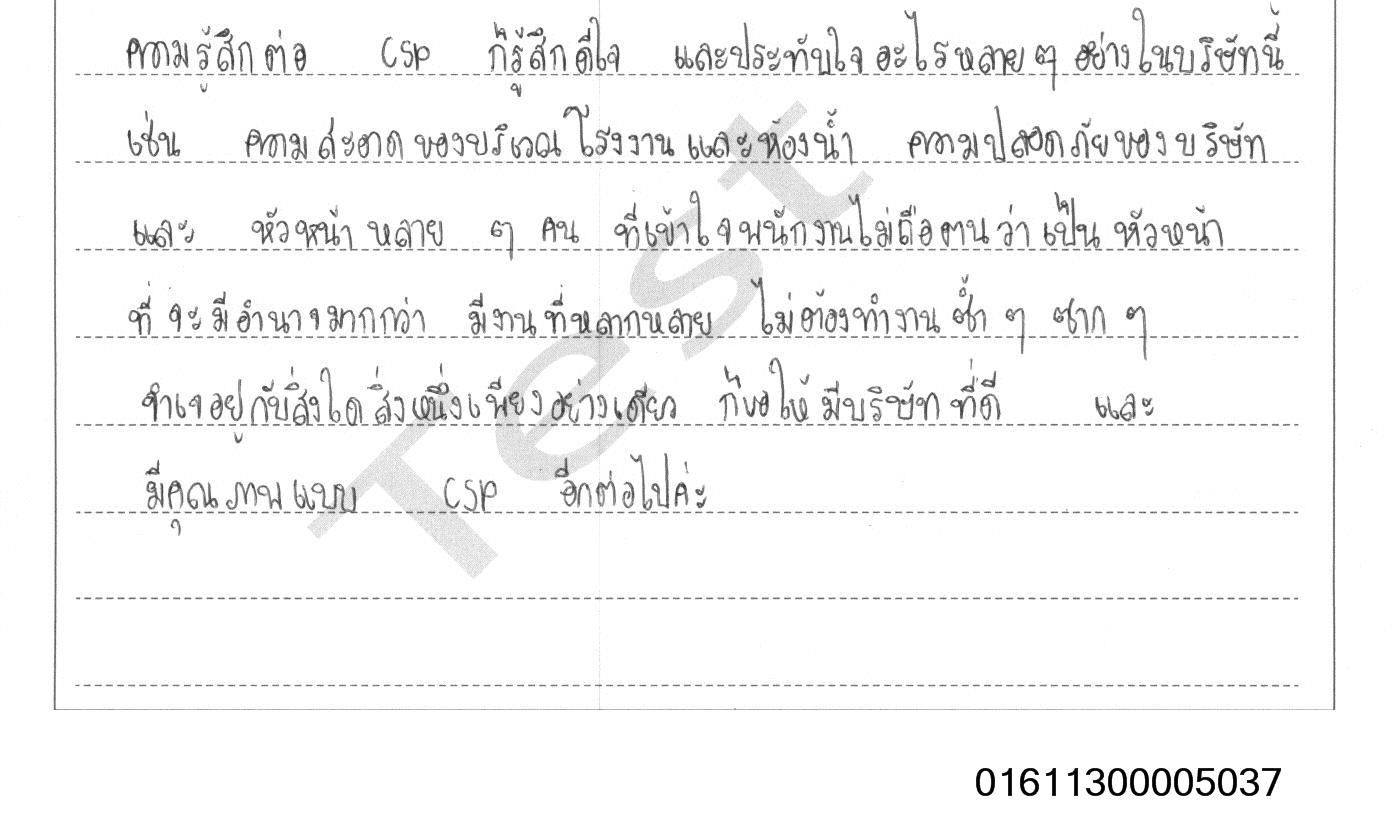 ความรู้สึกต่อ CSP ก็รู้สึกดีใจ และประทับใจอะไรหลายๆ อย่างในบริษัทนี้
เช่น ความสะอาดของบริเวณโรงงานและห้องน้ำ ความปลอดภัยของบริษัท
และ หัวหน้าหลาย ๆ คน ที่เข้าใจพนักงานไม่ถือตนว่าเป็น หัวหน้า
ที่ จะมีอำนาจมากกว่า มีงานที่หลากหลาย ไม่ต้องทำงานซ้ำ ๆ ซาก ๆ
จำเจอยู่กับสิ่งใดสิ่งหนึ่งเพียงอย่างเดียว ก็ขอให้มีบริษัทที่ดี และ
มีคุณภาพแบบ CSP อีกต่อไปค่ะ
Test
01611300005037